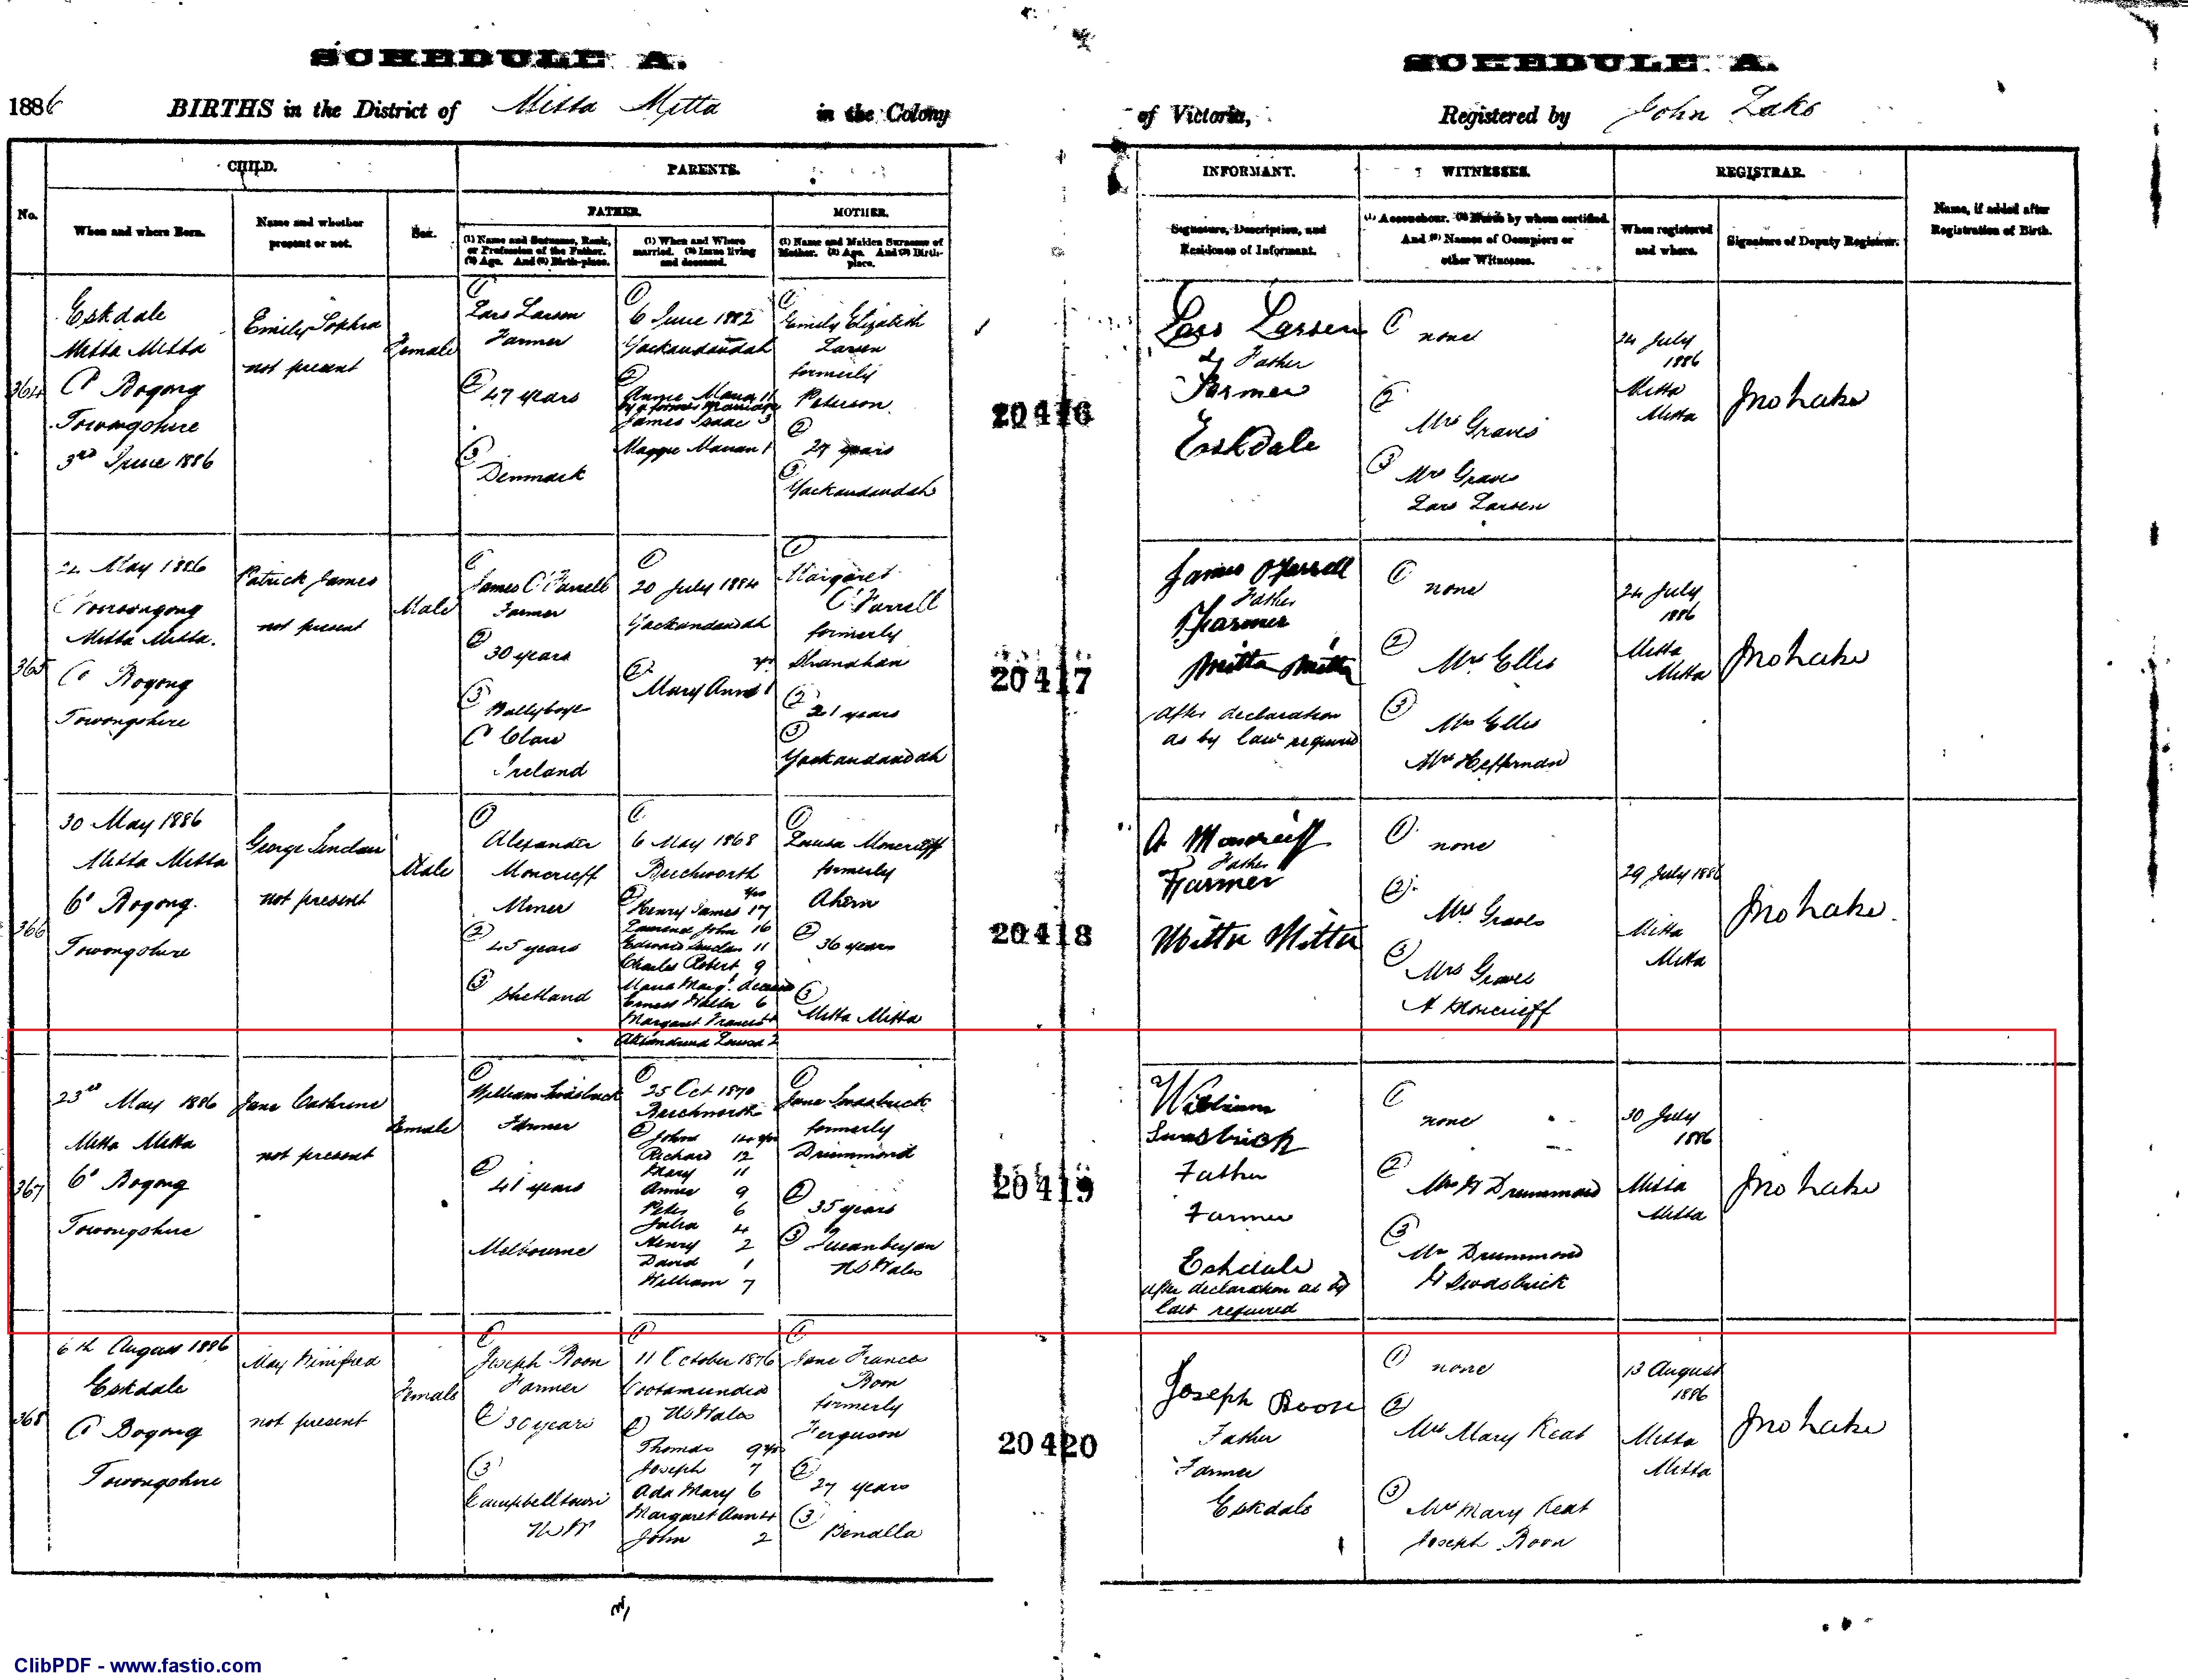 SCHEDULE A.
SCHEDULE A.
1886 BIRTHS in the District of Mitta Mitta in the Colony
of Victoria, Registered by John Lake
CHILD.
PARENTS.
INFORMANT.
WITNESSES.
REGISTRAR.
No.
When and where Born.
Name and whether
present or not.
Sex.
FATHER.
(1) Name and Surname, Rank,
or Profession of the Father.
(2) Age. And (3) Birth-place.
(1) When and Where
married. (2) Issue living
and deceased.
MOTHER.
(1) Name and Maiden Surname of
Mother. (2) Age. And (3) Birth-
place.
Signature, Description, and
Residence of Informant.
(1) Accoucheur. (2) Nurse by whom certified.
And (3) Names of Occupiers or
other Witnesses.
When registered
and where.
Signature of Deputy Registrar.
Name, if added after
Registration of Birth.
364
Eskdale
Mitta Mitta
Co Bogong
Towongshire
3rd June 1886
Emily Sophia
not present
Female
(1)
Lars Larsen
Farmer
(2)
47 years
(3)
Denmark
(1)
6 June 1882
Yackandandah
(2)
Annie Maria 11
by a former marriage
James Isaac 3
Maggie Marian 1
(1)
Emily Elizabeth
Larsen
formerly
Peterson
(2)
27 years
(3)
Yackandandah
20416
Lars Larsen
Father
Farmer
Eskdale
(1) none
(2)
Mrs Graves
(3)
Mrs Graves
Lars Larsen
24 July
1886
Mitta
Mitta
Jno Lake
365
22 May 1886
Mitta Mitta.
Co Bogong
Towongshire
Patrick James
not present
Male
(1)
James O'Farrell
Farmer
(2)
30 years
(3)
Ballyboye
Co Clare
Ireland
(1)
20 July 1884
Yackandandah
(2) yrs
Mary Anne 1
(1)
Margaret
O'Farrell
formerly
Shanahan
(2)
21 years
(3)
Yackandandah
20417
James O'Farrell
Father
Farmer
Mitta Mitta
after declaration
as by law required
(1)
none
(2)
Mrs Ellis
(3)
Mrs Ellis
Mrs Heffernan
24 July
1886
Mitta
Mitta
Jno Lake
366
30 May 1886
Mitta Mitta
Co Bogong.
Towongshire
George Sinclair
not present
Male
(1)
Alexander
Moncrieff
Miner
(2)
45 years
(3)
Shetland
(1)
6 May 1868
Beechworth
(2) yrs
Henry James 17
Laurence John 16
Edward Sinclair 11
Charles Robert 9
Maria Margt. deceased
Ernest Walter 6
Margaret Frances 4
Alexandrina Louisa 2
(1)
Louisa Moncrieff
formerly
Ahern
(2)
36 years
(3)
Mitta Mitta
20418
A Moncrieff
Father
Farmer
Mitta Mitta
(1)
none
(2)
Mrs Graves
(3)
Mrs Graves
A Moncrieff
29 July 1886
Mitta
Mitta
Jno Lake.
367
23rd May 1886
Mitta Mitta
Co Bogong
Towongshire
Jane Cathrine
not present
Female
(1)
William Swasbrick
Farmer
(2)
41 years
Melbourne
(1)
25 Oct 1870
Beechworth
(2)
John 14 yrs
Richard 12
Mary 11
Annie 9
Peter 6
Julia 4
Henry 2
David 1
William 7
(1)
Jane Swasbrick
formerly
Drummond
(2)
35 years
(3)
Queanbeyan
NS Wales
20419
William
Swasbrick
Father
Farmer
Eskdale
after declaration as by
law required
(1)
none
(2)
Mrs H Drummond
(3)
Mrs Drummond
W Swasbrick
30 July
1886
Mitta
Mitta
Jno Lake
368
6th August 1886
Eskdale
Co Bogong
Towongshire
May Winifred
not present
Female
(1)
Joseph Boon
Farmer
(2) 30 years
(3)
Campbelltown
NSW
(1)
11 October 1876
Cootamundra
NS Wales
(2)
Thomas 9 yrs
Joseph 7
Ada Mary 6
Margaret Ann 4
John 2
(1)
Jane Frances
Boon
formerly
Ferguson
(2)
27 years
(3)
Benalla
20420
Joseph Boon
Father
Farmer
Eskdale
(1) none
(2)
Mrs Mary Keat
(3)
Mrs Mary Keat
Joseph Boon
13 August
1886
Mitta
Mitta
Jno Lake
ClibPDF - www.fastio.com